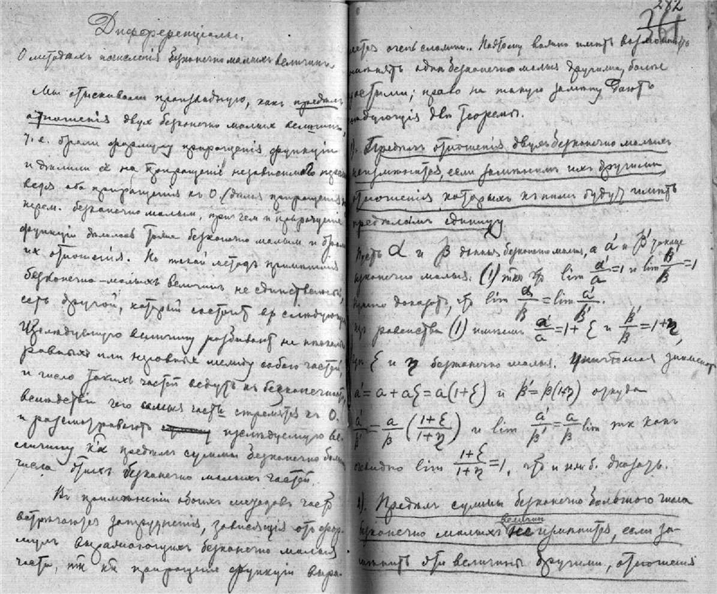 Дифференціалы.
О методахъ исчисленія безконечно малыхъ величинъ.
Мы отыскивали производную, какъ предѣлъ
отношенія двухъ безконечно малыхъ величинъ,
т. е. брали формулу приращенія функціи
и дѣлили её на приращеніе независимой
оба приращенія къ 0 (дѣлая приращеніе
перем. безконечно малымъ, причемъ и приращеніе
функціи дѣлалось тоже безконечно малымъ и брали
ихъ отношенія. Но такой методъ примѣненія
безконечно-малыхъ величинъ не единственный,
есть другой, который состоитъ въ слѣдующемъ
Изслѣдуемую величину разбиваютъ на нѣсколько
равныхъ или неравныхъ между собою частей,
и число такихъ частей ведутъ къ безконечности
вслѣдствіи чего самыя части стремятся къ 0.
и разсматриваютъ изслѣдуемую ве-
личину какъ предѣлъ суммы безконечно большого
числа этихъ безконечно малыхъ частей.
Въ примѣненіи обоихъ методовъ часто
встрѣчаются затрудненія, зависящія отъ фор-
мулъ выражающихъ безконечно малыя
части, тк кк приращеніе функціи выра-
282
очень сложны. Поэтому важно имѣть возможность
замѣнять одни безконечно малыя другими, болѣе
простыми; право на такую замѣну даютъ
слѣдующія двѣ теоремы.
1). Предѣлъ отношенія двухъ безконечно малыхъ
не измѣняется, если замѣнимъ ихъ другими
отношенія которыхъ къ нимъ будутъ имѣть
предѣломъ единицу
Пусть α и β данныя безконечно малыя, а α' и β' другія
безконечно малыя. (1) lim α'/α = 1 и lim β'/β = 1
Нужно доказать, что lim α/β = lim α'/β'.
Изъ равенства (1) имѣемъ α'/α = 1 + ξ и β'/β = 1 + η,
гдѣ ξ и η безконечно малыя. Уничтожая знаменат
α' = α + αξ = α(1+ξ) и β' = β(1+η) откуда
α'/β' = α/β (1+ξ / 1+η) и lim α'/β' = α/β lim тк какъ
очевидно lim 1+ξ / 1+η = 1, что и нт б. доказать.
2). Предѣлъ суммы безконечно большого числа
безконечно малыхъ не измѣнится, если за-
мѣнить эти величины другими, отношенія